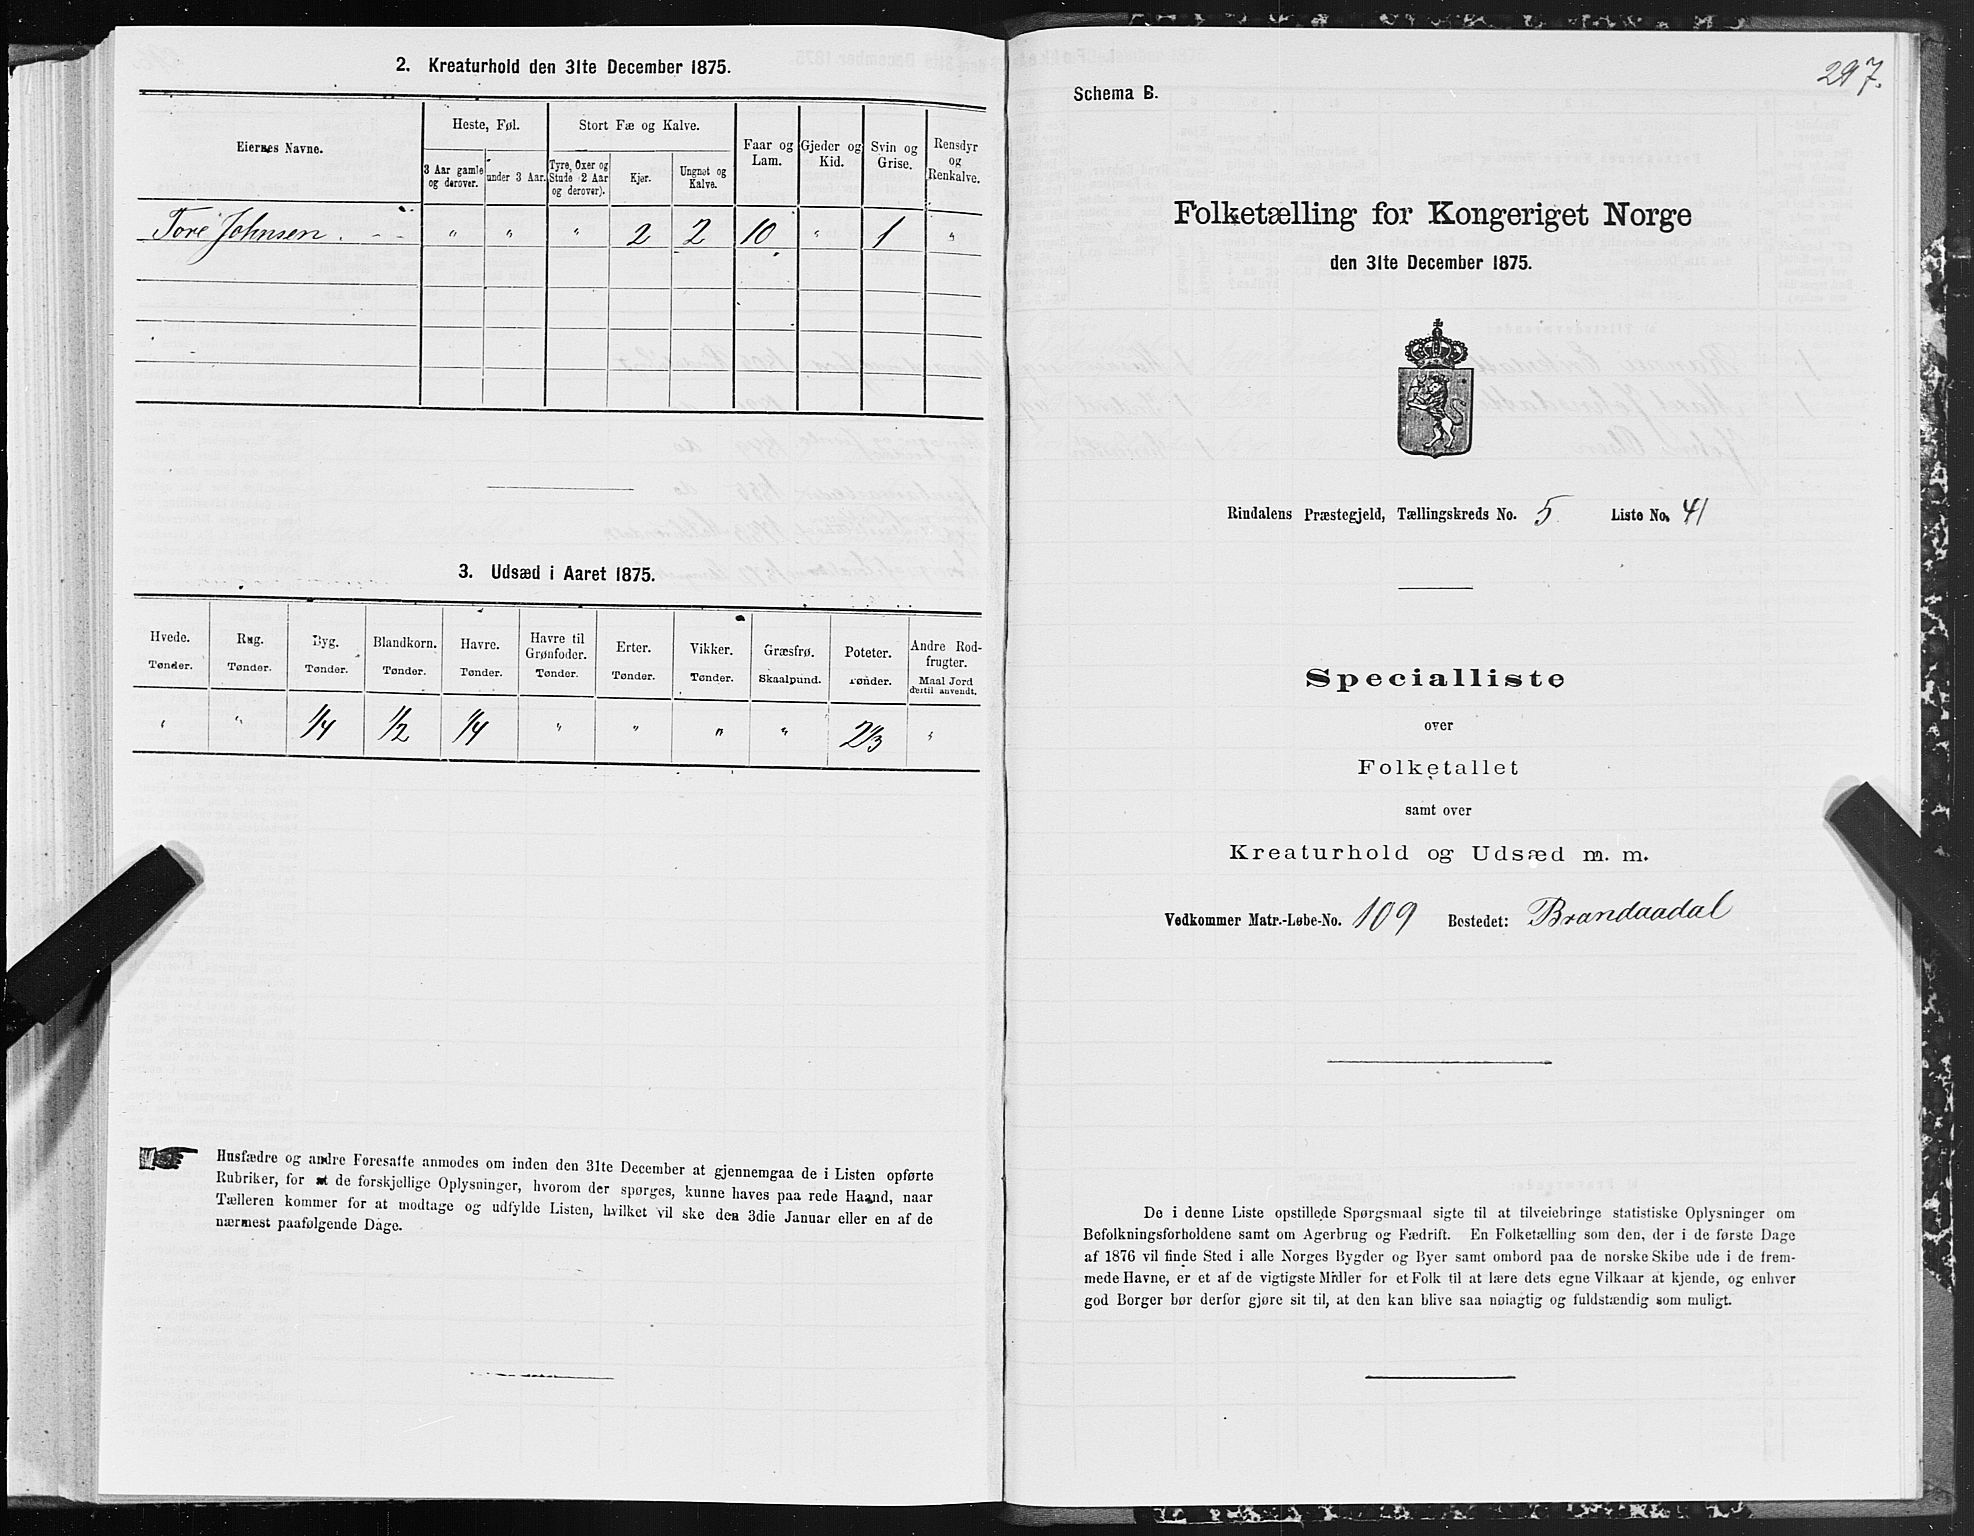 2. Kreaturhold den 31te December 1875.
Eiernes Navne.
Heste, Føl.
Stort Fæ og Kalve.
Faar og Lam.
Gjeder og Kid.
Svin og Grise.
Rensdyr og Renkalve.
3 Aar gamle og derover.
under 3 Aar.
Tyre, Oxer og Stude 2 Aar og derover).
Kjør.
Ungnøt og Kalve.
Tore Johnsen . - - " " " 2 2 10 " 1 "
3. Udsæd i Aaret 1875.
Hvede. Rug. Byg. Blandkorn. Havre. Havre til Grønfoder. Erter. Vikker. Græsfrø. Poteter. Andre Rodfrugter.
Tønder. Tønder. Tønder. Tønder. Tønder. Tønder. Tønder. Tønder. Skaalpund. Tønder. Maal Jord dertil anvendt.
" " 1/4 1/2 1/4 " " " " 2 1/3 "
Husfædre og andre Foresatte anmodes om inden den 31te December at gjennemgaa de i Listen opførte
Rubriker, for at de forskjellige Oplysninger, hvorom der spørges, kunne haves paa rede Haand, naar
Tælleren kommer for at modtage og udfylde Listen, hvilket vil ske den 3die Januar eller en af de
nærmest paafølgende Dage.
297.
Schema B.
Folketælling for Kongeriget Norge
den 31te December 1875.
Rindalens Præstegjeld, Tællingskreds No. 5 Liste No. 41
Specialliste
over
Folketallet
samt over
Kreaturhold og Udsæd m. m.
Vedkommer Matr.-Løbe-No. 109 Bostedet: Brandaadal
De i denne Liste opstillede Spørgsmaal sigte til at tilveiebringe statistiske Oplysninger om
Befolkningsforholdene samt om Agerbrug og Fædrift. En Folketælling som den, der i de første Dage
af 1876 vil finde Sted i alle Norges Bygder og Byer samt ombord paa de norske Skibe ude i de frem-
mede Havne, er et af de vigtigste Midler for et Folk til at lære dets egne Vilkaar at kjende, og enhver
god Borger bør derfor gjøre sit til, at den kan blive saa nøiagtig og fuldstændig som muligt.